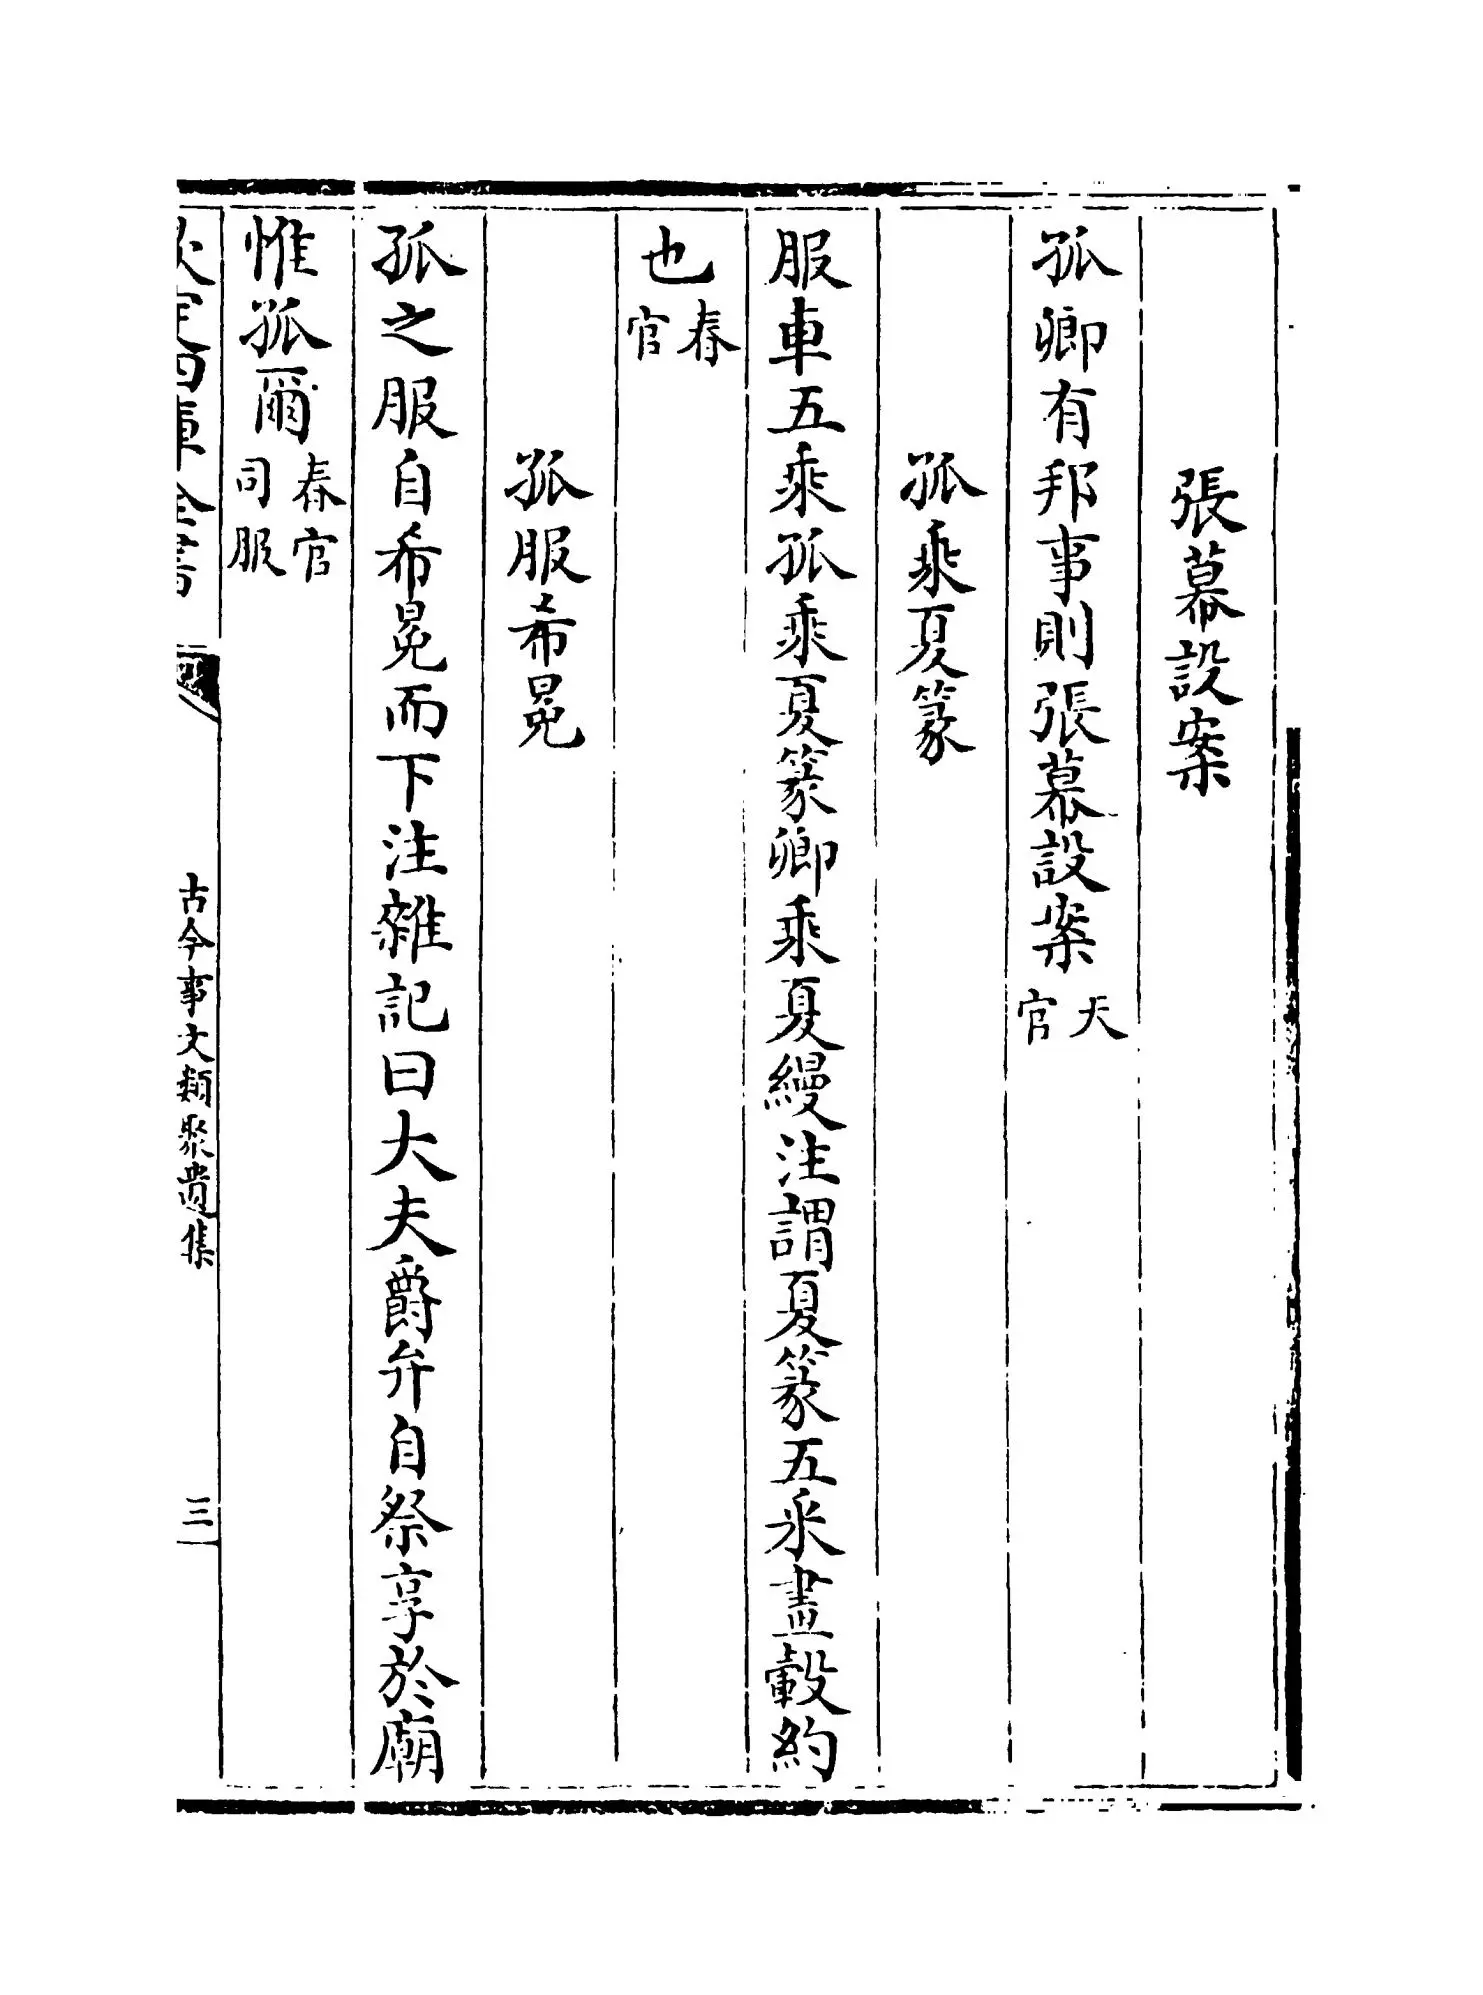 張幕設案
孤卿有邦事則張幕設案天官
孤乘夏篆
服車五乘孤乘夏篆卿乘夏縵注謂夏篆五采畫轂約
也春官
孤服希冕
孤之服自希冕而下注雜記曰大夫爵弁自祭享於廟
惟孤爾春官司服
欽定四庫全書
古今事文類聚遺集
三